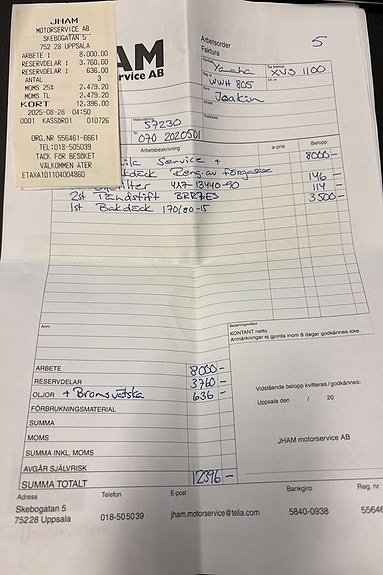 JHAM
MOTORSERVICE AB
SKEBOGATAN 5
752 28 UPPSALA
ARBETE 1 8.000.00
RESERVDELAR 1 3.760.00
RESERVDELAR 1 636.00
ANTAL 3
MOMS 25% 2.479.20
MOMS TL 2.479.20
KORT 12.396.00
2025-08-28 04:50
0001 KASSOR01 010726
ORG.NR 556461-6661
TEL:018-505039
TACK FÖR BESÖKET
VÄLKOMMEN ÅTER
ETAXA101104004860
HAM
service AB
Arbetsorder
Faktura
5
Yamaha XVS 1100
WWH 805
Joakin
57230
070 2020501
Arbetsbeskrivning a-pris Belopp
Service + 8000-
Reng. av förgasare
146-
417-13440-90 114-
2st Tändstift BRR7ES 3500-
1st Bakdäck 170/80-15
Anm.
KONTANT netto
Anmärkningar ej gjorda inom 8 dagar godkännes icke.
ARBETE 8000-
RESERVDELAR 3760-
OLJOR + Bromsvätska 636-
FÖRBRUKNINGSMATERIAL
SUMMA
MOMS
SUMMA INKL. MOMS
AVGÅR SJÄLVRISK
SUMMA TOTALT 12396-
Vidstående belopp kvitteras/godkännes:
Uppsala den / 20
JHAM motorservice AB
Adress Telefon E-post Bankgiro Reg. nr
Skebogatan 5
752 28 Uppsala 018-505039 jham.motorservice@telia.com 5840-0938 55646